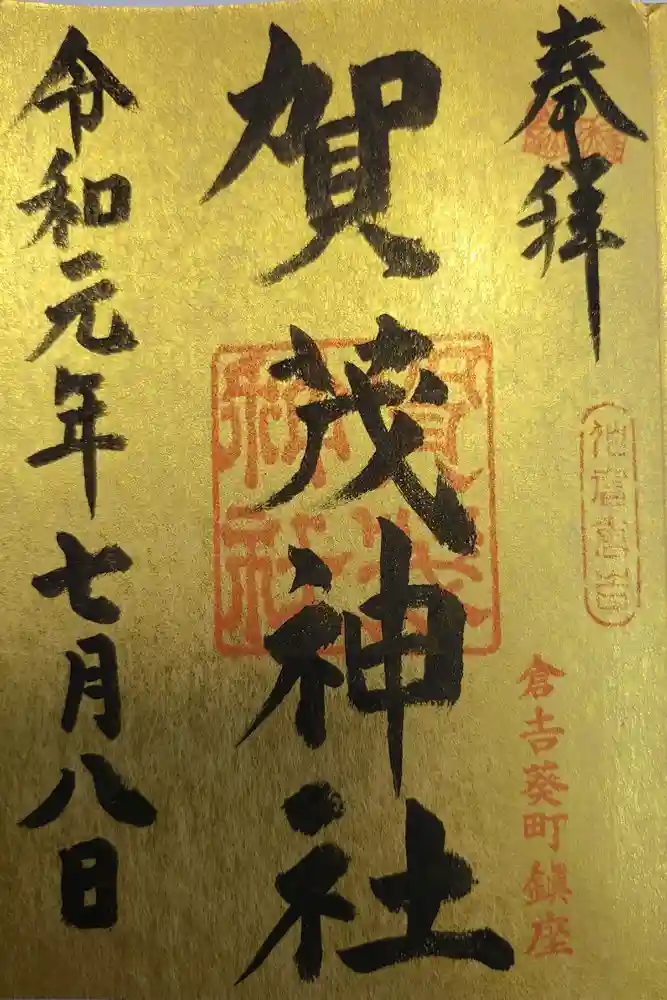 奉拝
倉吉葵町鎮座
賀茂神社
賀茂
神社
令和元年七月八日